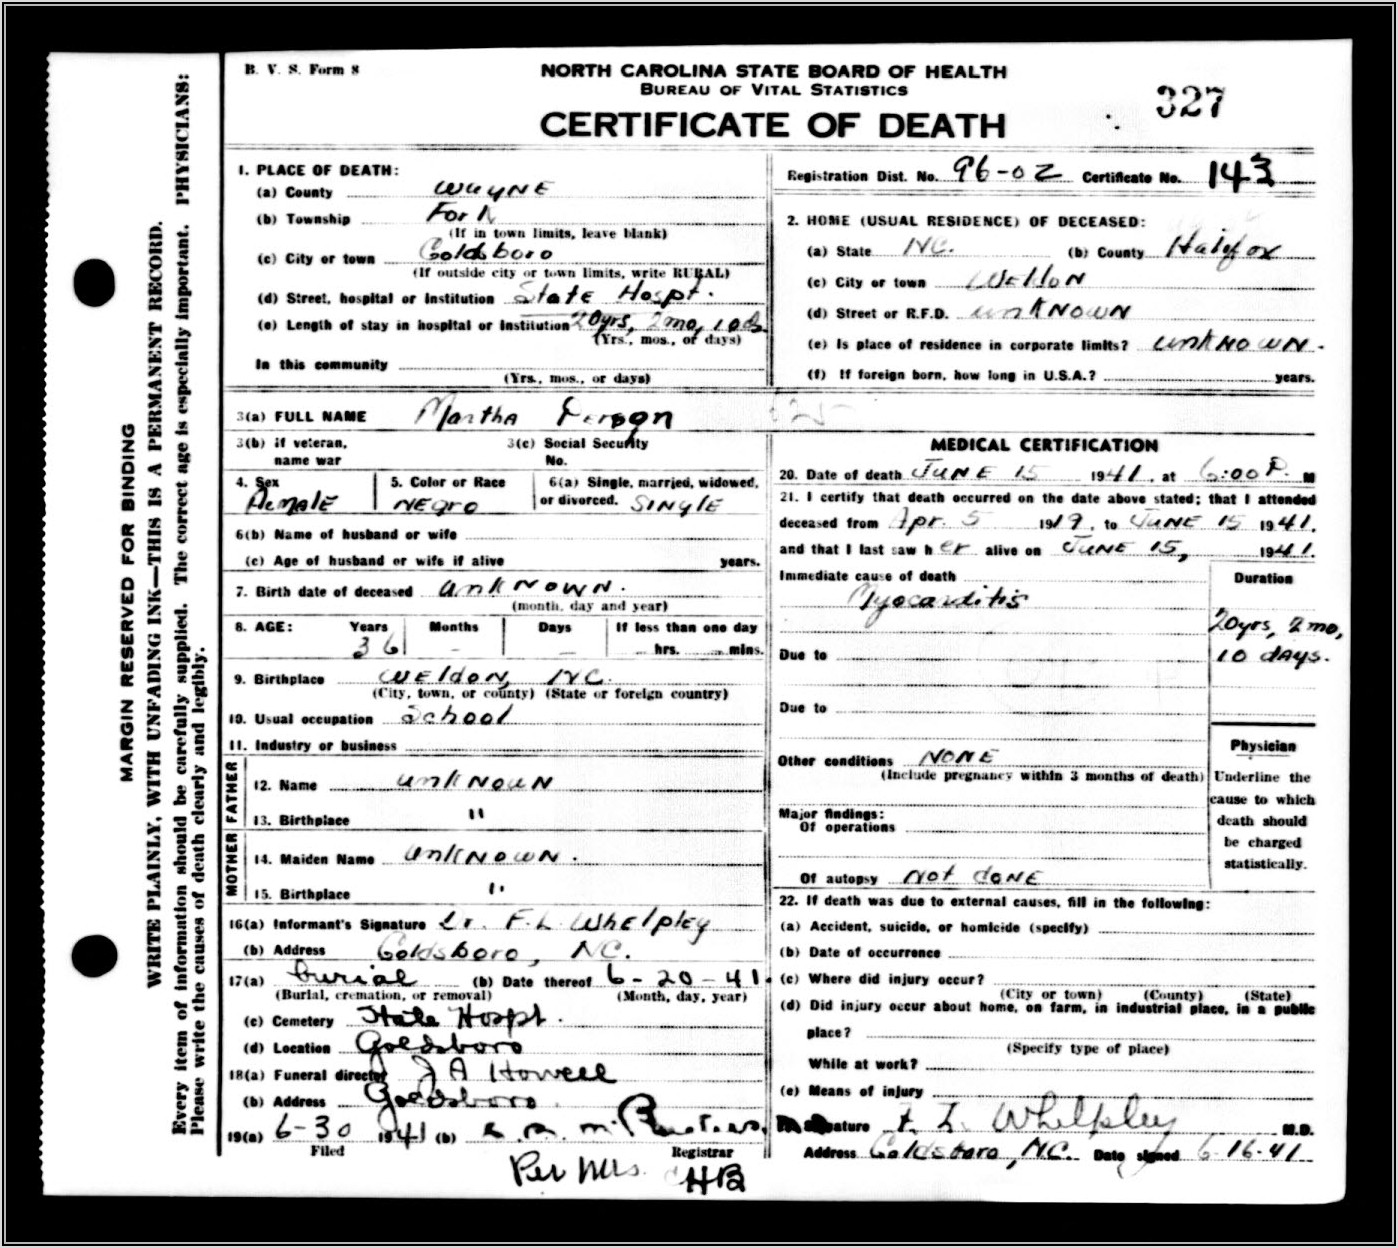 B. V. S. Form 8
NORTH CAROLINA STATE BOARD OF HEALTH
BUREAU OF VITAL STATISTICS
CERTIFICATE OF DEATH
327
MARGIN RESERVED FOR BINDING
WRITE PLAINLY, WITH UNFADING INK—THIS IS A PERMANENT RECORD.
Every item of information should be carefully supplied. The correct age is especially important. PHYSICIANS:
Please write the causes of death clearly and legibly.
1. PLACE OF DEATH:
(a) County WAYNE
(b) Township Fork
(If in town limits, leave blank)
(c) City or town Goldsboro
(If outside city or town limits, write RURAL)
(d) Street, hospital or institution State Hospt.
(e) Length of stay in hospital or institution 20yrs, 2mo, 10ds
(Yrs., mos., or days)
In this community
(Yrs., mos., or days)
Registration Dist. No. 96-02 Certificate No. 143
2. HOME (USUAL RESIDENCE) OF DECEASED:
(a) State NC. (b) County Halifax
(c) City or town Weldon
(d) Street or R.F.D. unknown
(e) Is place of residence in corporate limits? unknown.
(f) If foreign born, how long in U.S.A.? years.
3(a) FULL NAME Martha Person
3(b) If veteran, name war
3(c) Social Security No.
4. Sex Female
5. Color or Race Negro
6(a) Single, married, widowed, or divorced. Single
6(b) Name of husband or wife
(c) Age of husband or wife if alive years.
7. Birth date of deceased unknown.
(month, day and year)
8. AGE: Years Months Days If less than one day
36 - - hrs. mins.
9. Birthplace Weldon, NC.
(City, town, or county) (State or foreign country)
10. Usual occupation School
11. Industry or business
FATHER
12. Name unknown
13. Birthplace "
MOTHER
14. Maiden Name unknown.
15. Birthplace "
16(a) Informant's Signature Dr. F. L. Whelpley
(b) Address Goldsboro, NC.
17(a) burial (b) Date thereof 6-20-41.
(Burial, cremation, or removal) (Month, day, year)
(c) Cemetery State Hospt.
(d) Location Goldsboro
18(a) Funeral director J A Howell
(b) Address Goldsboro.
19(a) 6-30 1941 (b)
Filed Registrar
Per Mrs. HB
MEDICAL CERTIFICATION
20. Date of death JUNE 15 1941, at 6:00 P. M
21. I certify that death occurred on the date above stated; that I attended
deceased from Apr. 5 1919, to JUNE 15 1941.
and that I last saw her alive on JUNE 15, 1941.
Immediate cause of death
Myocarditis
Duration
20yrs, 2mo, 10 days.
Due to
Due to
Other conditions NONE
(Include pregnancy within 3 months of death)
Major findings:
Of operations
Of autopsy Not done
Physician
Underline the
cause to which
death should
be charged
statistically.
22. If death was due to external causes, fill in the following:
(a) Accident, suicide, or homicide (specify)
(b) Date of occurrence
(c) Where did injury occur?
(City or town) (County) (State)
(d) Did injury occur about home, on farm, in industrial place, in a public
place?
(Specify type of place)
While at work?
(e) Means of injury
Signature F. L. Whelpley M.D.
Address Goldsboro, NC. Date signed 6-16-41